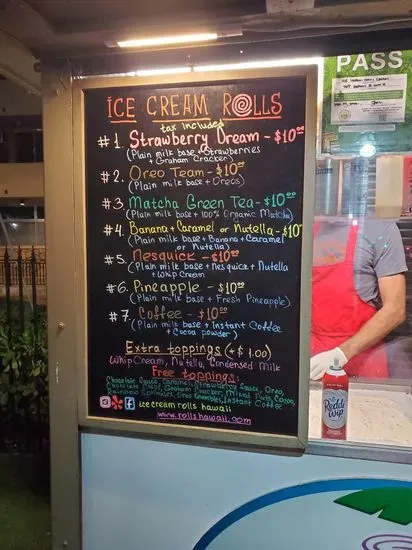 PASS
ICE CREAM ROLLS
tax included
#1. Strawberry Dream - $10⁰⁰
(Plain milk base + Strawberries
+ Graham Cracker)
#2. Oreo Team - $10⁰⁰
(Plain milk base + Oreos)
#3 Matcha Green Tea - $10⁰⁰
(Plain milk base + 100% Organic Matcha)
#4. Banana + Caramel or Nutella - $10⁰⁰
(Plain milk base + Banana + Caramel
or Nutella)
#5. Nesquick - $10⁰⁰
(Plain milk base + Nesquick + Nutella
+ Whip Cream
#6. Pineapple - $10⁰⁰
(Plain milk base + Fresh Pineapple)
#7. Coffee - $10⁰⁰
(Plain milk base + Instant Coffee
+ Cocoa powder)
Extra toppings (+$1.00)
Whip Cream, Nutella, Condensed Milk
Free toppings:
Chocolate Sauce, Caramel, Strawberry Sauce, Oreo,
Chocolate Chips, Graham Cracker, Mixed Nuts, Cocoa,
Rainbow Sprinkles, Oreo Crumbles, Instant Coffee
icecream rolls hawaii
www.rollshawaii.com
Reddi
Wip